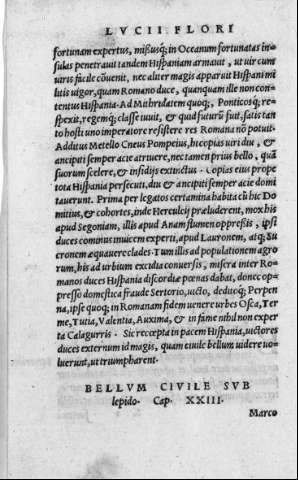 LVCII FLORI
fortunam expertus, mißusq; in Oceanum fortunatas in-
sulas penetrauit tandem Hispaniam armauit, ut uir cum
uiris facile cõuenit, nec aliter magis apparuit Hispani mi
litis uigor, quam Romano duce, quanquam ille non con-
tentus Hispania. Ad Mithridatem quoq;, Ponticosq; re-
spexit, regemq; classe iuuit, & quid futurũ fuit, satis tan
to hosti uno imperatore resistere res Romana nõ potuit.
Additus Metello Cneus Pompeius, hi copias uiri diu, &
ancipiti semper acie atriuere, nec tamen prius bello, quã
suorum scelere, & insidijs extinctus. Copias eius prope
tota Hispania persecuti, diu & ancipiti semper acie domi
tauerunt. Prima per legatos certamina habita cũ hic Do
mitius, & cohortes, inde Herculeij præluderent, mox his
apud Segoniam, illis apud Anam flumen oppreßis, ipsi
duces cominus inuicem experti, apud Lauronem, atq; Su
cronem æquauere clades. Tum illis ad populationem agro
rum, his ad urbium excidia conuersis, misera inter Ro-
manos duces Hispania discordiæ pœnas dabat, donec op-
presso domestica fraude Sertorio, uicto, deditoq; Perpen
na, ipsæ quoq; in Romanam fidem uenere urbes Osca, Ter
me, Tutia, Valentia, Auxima, & in fame nihil non exper
ta Calagurris. Sic recepta in pacem Hispania, uictores
duces externum id magis, quam ciuile bellum uidere uo-
luerunt, ut triumpharent.
BELLVM CIVILE SVB
lepido. Cap. XXIII.
Marco